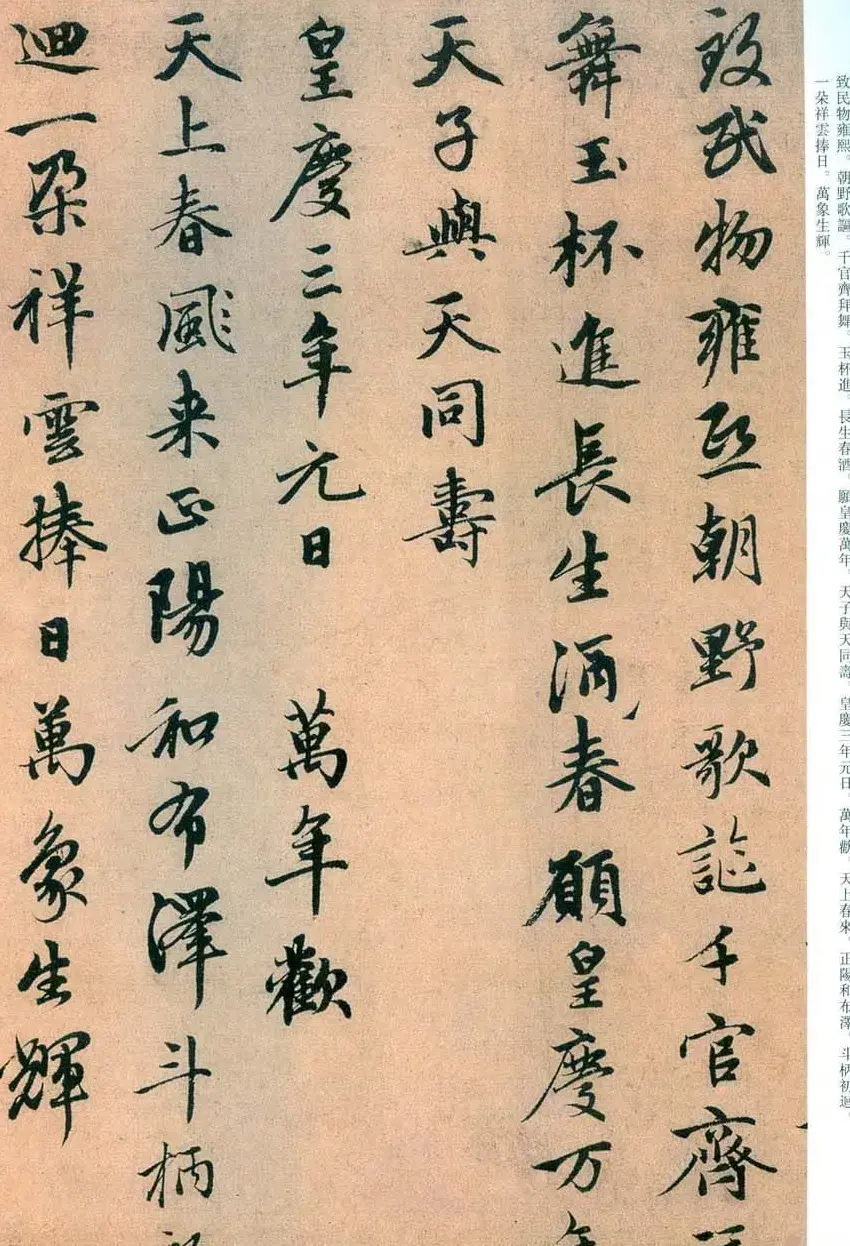 致民物雍熙。朝野歌謳。千官齊拜舞。玉杯進。長生春酒。願皇慶萬年。天子與天同壽。皇慶三年元日。萬年歡。天上春來。正陽和布澤。斗柄初迴。
一朵祥雲捧日。萬象生輝。
致民物雍熙朝野歌謳千官齊
舞玉杯進長生酒春願皇慶万年
天子與天同壽
皇慶三年元日 萬年歡
天上春風来正陽和布澤斗柄
迴一朵祥雲捧日萬象生輝